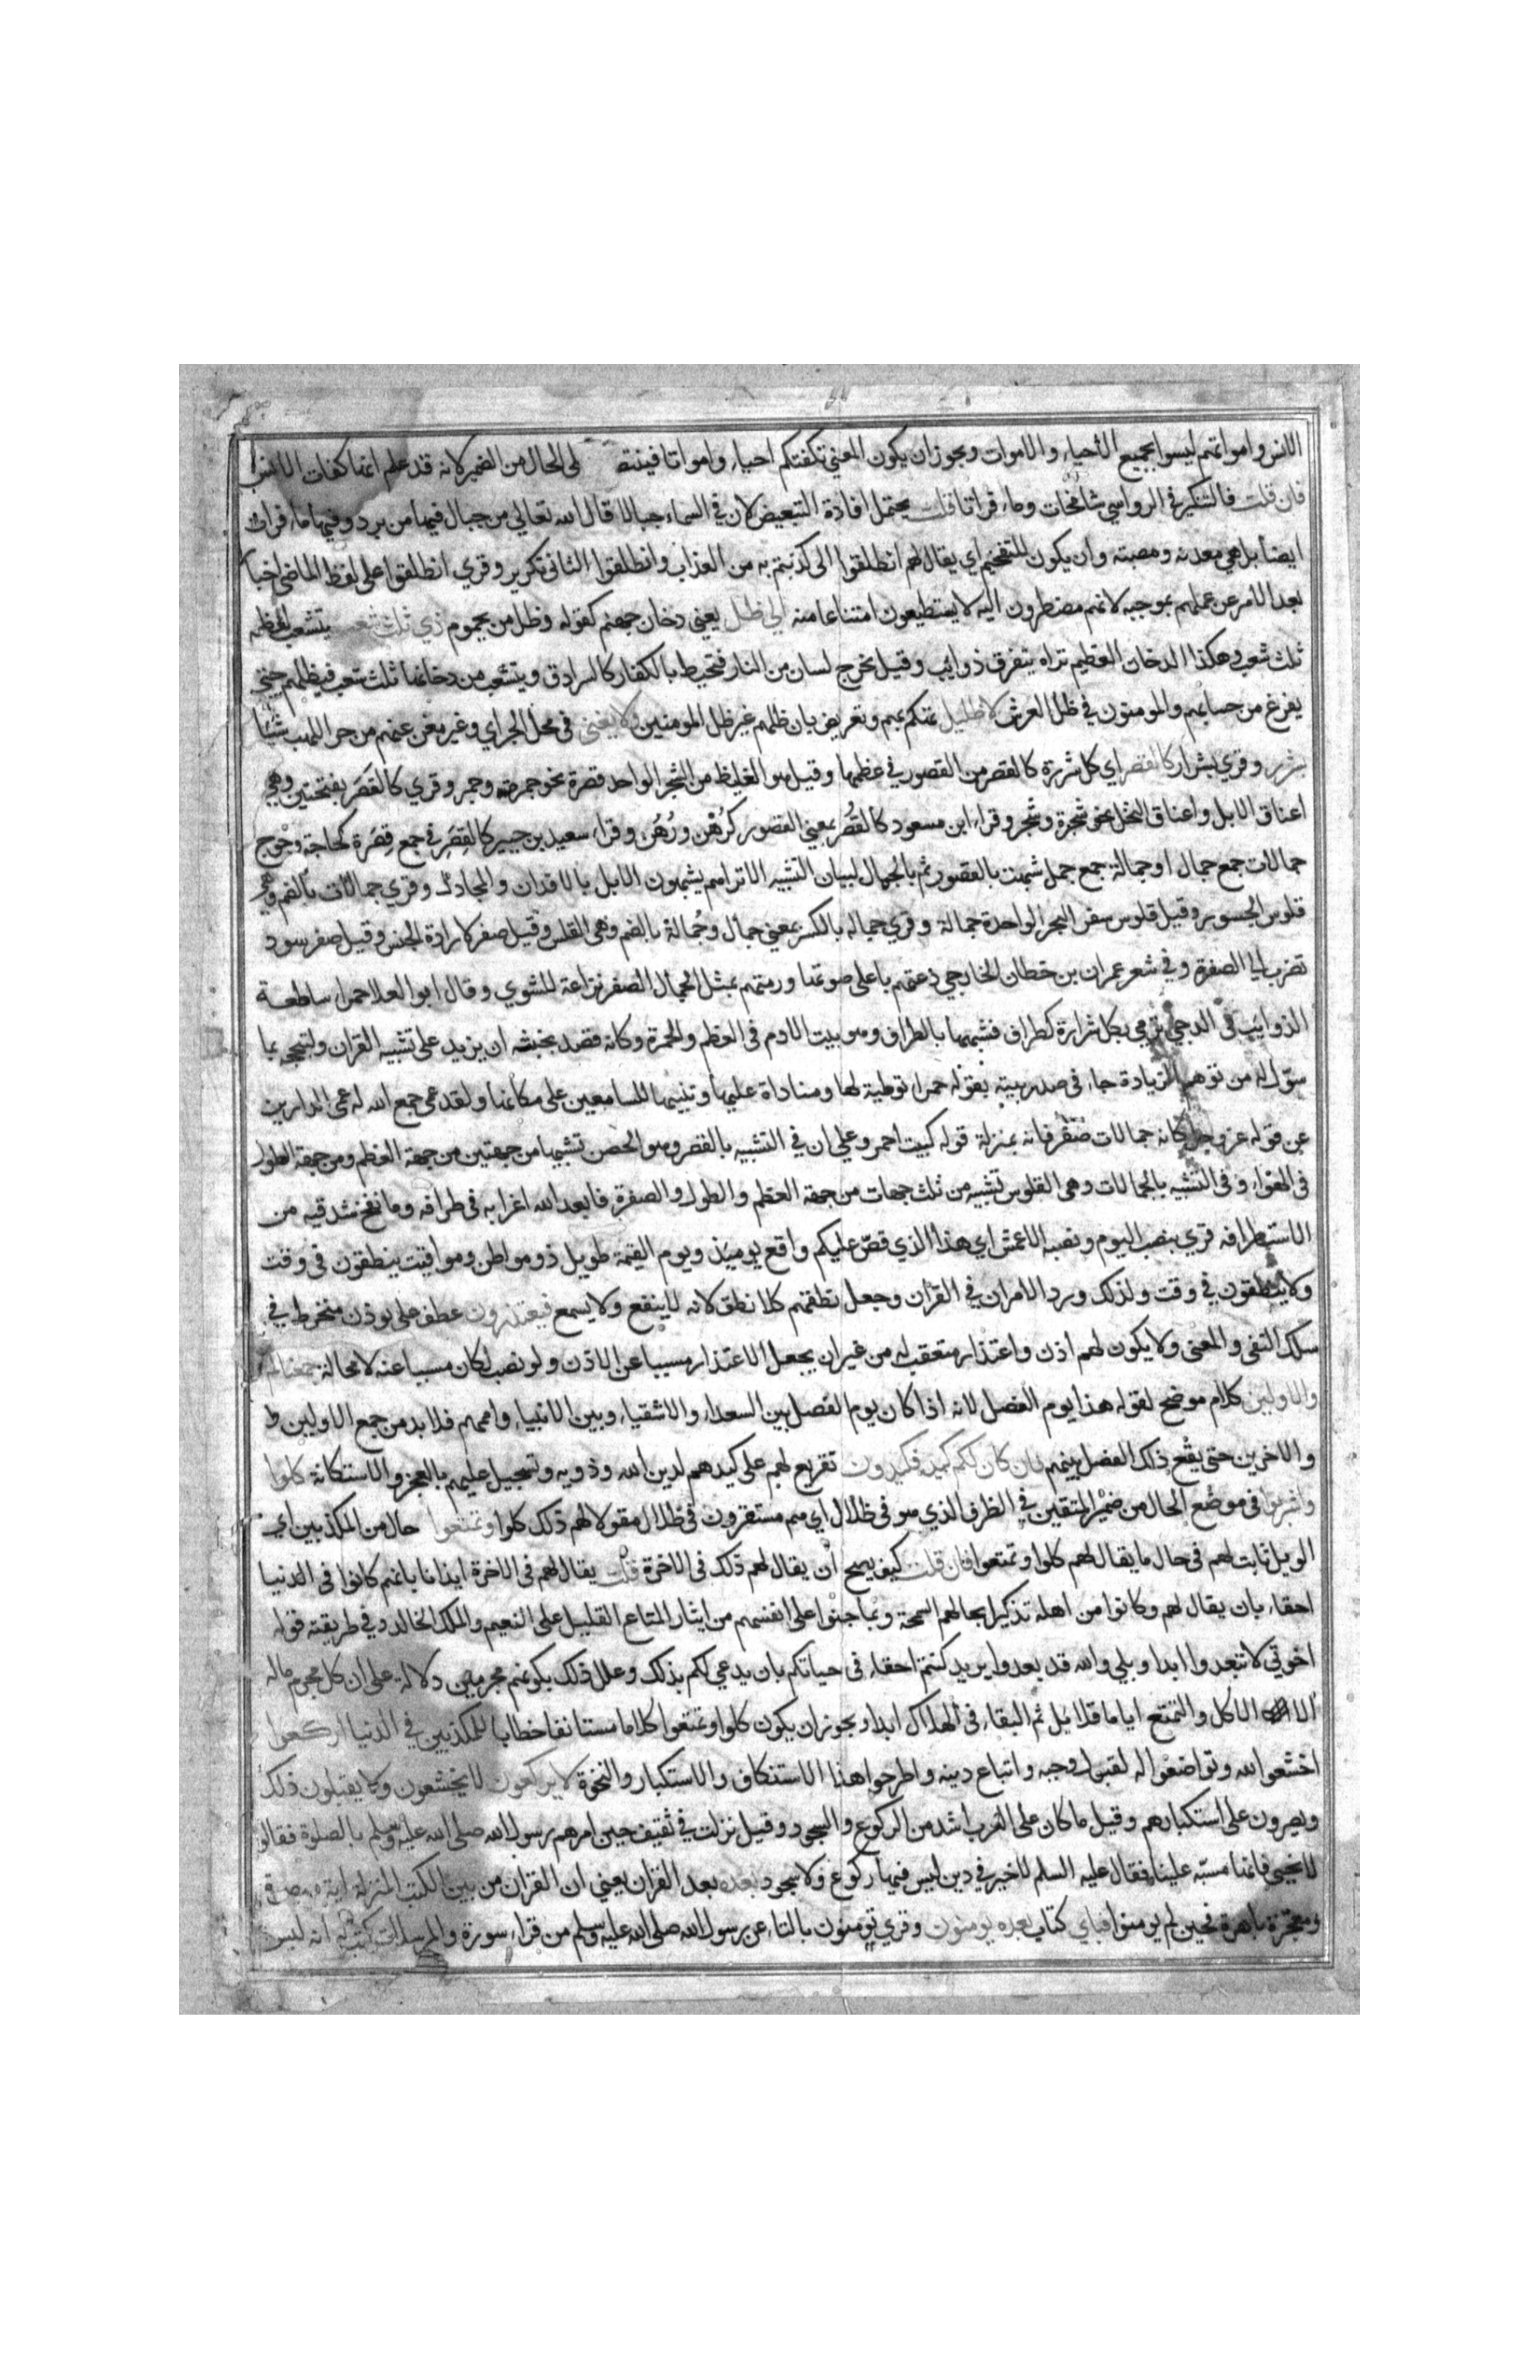 الانس وامواتهم ليسوا بجميع الاحياء والاموات ويجوز ان يكون المعنى تكفتكم احياء وامواتا فينتصـ لى الحال من الضمير لانه قد علم انها كفات الانس
فان قلت فالتنكير في الرواسي شامخات وماء فراتا قلت يحتمل افادة التبعيض لان في السماء جبالا قال الله تعالي من جبال فيها من برد وفيها ماء فرات
ايضا بل هي معدنه ومصبته وان يكون للتفخيم اي يقال لهم انطلقوا الى ما كذبتم به من العذاب وانطلقوا الثاني تكرير وقري انطلقوا على لفظ الماضي اخبارا
بعد الامر عن عملهم بموجبه لانهم مضطرون اليه لا يستطيعون امتناعا منه الي ظل يعني دخان جهنم كقوله وظل من يحموم ذي ثلث شعب يتشعب لعظمه
ثلث شعب وهكذا الدخان العظيم تراه يتفرق ذوايب وقيل يخرج لسان من النار فتحيط بالكفار كالسرادق ويتشعب من دخانها ثلث شعب فيظلهم حتى
يفرغ من حسابهم والمومنون في ظل العرش لا ظليل تهكم بهم وتعريض بان ظلهم غير ظل المومنين ولا يغني في محل الجر اي وغير مغن عنهم من حر اللهب شيئا
بشرر وقري بشرار كالقصر اي كل شررة كالقصر من القصور في عظمها وقيل هو الغليظ من الشجر الواحد قصرة نحو جمرة وجمر وقري كالقَصَر بفتحتين وهي
اعناق الابل واعناق النخل نحو شجرة وشجر وقراء ابن مسعود كالقُصُر بمعني القصور كرُهُن ورُهُن وقراء سعيد بن جبير كالقِصَر في جمع قِصَرة كحاجة وحوج
جمالات جمع جمال او جمالة جمع جمل شبهت بالقصور ثم بالجمال لبيان التشبيه الا تراهم يشبهون الابل بالافدان والمجادل وقري جمالات بالضم وهي
قلوس الجسور وقيل قلوس سفن البحر الواحدة جمالة وقري جماله بالكسر بمعني جمال وجُمالة بالضم وهي القلس وقيل صفر لارادة الجنس وقيل صفر سود
تضرب الي الصفرة وفي شعر عمران بن حطان الخارجي دعتهم باعلى صوتها ورمتهم بمثل الجمال الصفر نزاعة للشوي وقال ابو العلا حمرا ساطعة
الذوايب في الدجي ترمي بكل شرارة كطراف فشبهها بالطراف وهو بيت الادم في العظم والحمرة وكانه قصد بخبثه ان يزيد على تشبيه القران ولتبجحه بما
سوّل له من توهم الزيادة جاء في صدر بيته بقوله حمرا توطية لها ومناداة عليها وتنبيها للسامعين على مكانها ولقد عمي جمع الله له عمي الدارين
عن قوله عز وجل كانه جمالات صفر فانه بمنزلة قوله كبيت احمر وعلي ان في التشبيه بالقصر وهو الحصن تشبيها من جهتين من جهة العظم ومن جهة الطول
في الهواء وفي التشبيه بالجمالات وهي القلوس تشبيه من ثلث جهات من جهة العظم والطول والصفرة فابعد الله اغرابه في طرافه وما نفخ شدقيه من
الاستطرافه قري بنصب اليوم ونصبه الاعمش اي هذا الذي قصّ عليكم واقع يوميذ ويوم القيمة طويل ذو مواطن ومواقيت ينطقون في وقت
ولا ينطقون في وقت ولذلك ورد الامران في القران وجعل نطقهم كلا نطق لانه لا ينفع ولا يسمع فيعتذرون عطف على يوذن منخرط في
سلك النفي والمعنى ولا يكون لهم اذن واعتذار متعقب له من غير ان يجعل الاعتذار مسببا عن الاذن ولو نصب لكان مسببا عنه لا محالة جمعناكم
والاولين كلام موضح لقوله هذا يوم الفصل لانه اذا كان يوم الفصل بين السعداء والاشقياء وبين الانبياء واممهم فلا بد من جمع الاولين و
والاخرين حتى يقع ذلك الفصل بينهم فان كان لكم كيد فكيدون تقريع لهم على كيدهم لدين الله وذويه وتسجيل عليهم بالعجز والاستكانة كلوا
واشربوا في موضع الحال من ضمير المتقين في الظرف الذي هو في ظلال اي هم مستقرون في ظلال مقولا لهم ذلك كلوا وتمتعوا حال من المكذبين اي
الويل ثابت لهم في حال ما يقال لهم كلوا وتمتعوا فان قلت كيف يصح ان يقال لهم ذلك في الاخرة قلت يقال لهم في الاخرة ايذانا بانهم كانوا في الدنيا
احقاء بان يقال لهم وكانوا من اهله تذكيرا بحالهم السمجة وبما جنوا على انفسهم من ايثار المتاع القليل على النعيم والملك الخالد وفي طريقته قوله
اخوتي لا تبعدوا ابدا وبلي والله قد بعدوا يريد كنتم احقاء في حياتكم بان يدعي لكم بذلك وعلل ذلك بكونهم مجرمين دلالة على ان كل مجرم ماله
الا الاكل والتمتع اياما قلايل ثم البقاء في الهلاك ابدا ويجوز ان يكون كلوا وتمتعوا كلاما مستانفا خطابا للمكذبين في الدنيا اركعوا
اخشعوا لله وتواضعوا له لقبول وحيه واتباع دينه واطرحوا هذا الاستنكاف والاستكبار والنخوة لا يركعون لا يخشعون ولا يقبلون ذلك
ويصرون على استكبارهم وقيل ما كان على العرب اشد من الركوع والسجود وقيل نزلت في ثقيف حين امرهم رسول الله صلى الله عليه وسلم بالصلوة فقالوا
لا نحبي فانها مسبه علينا فقال عليه السلم لا خير في دين ليس فيها ركوع ولا سجود بعده بعد القران يعني ان القران من بين الكتب المنزلة اية مبصرة
ومعجزة باهرة فحين لم يومنوا فباي كتاب بعده يومنون وقري تومنون بالتاء عن رسول الله صلى الله عليه وسلم من قراء سورة والمرسلات كتب له انه ليس